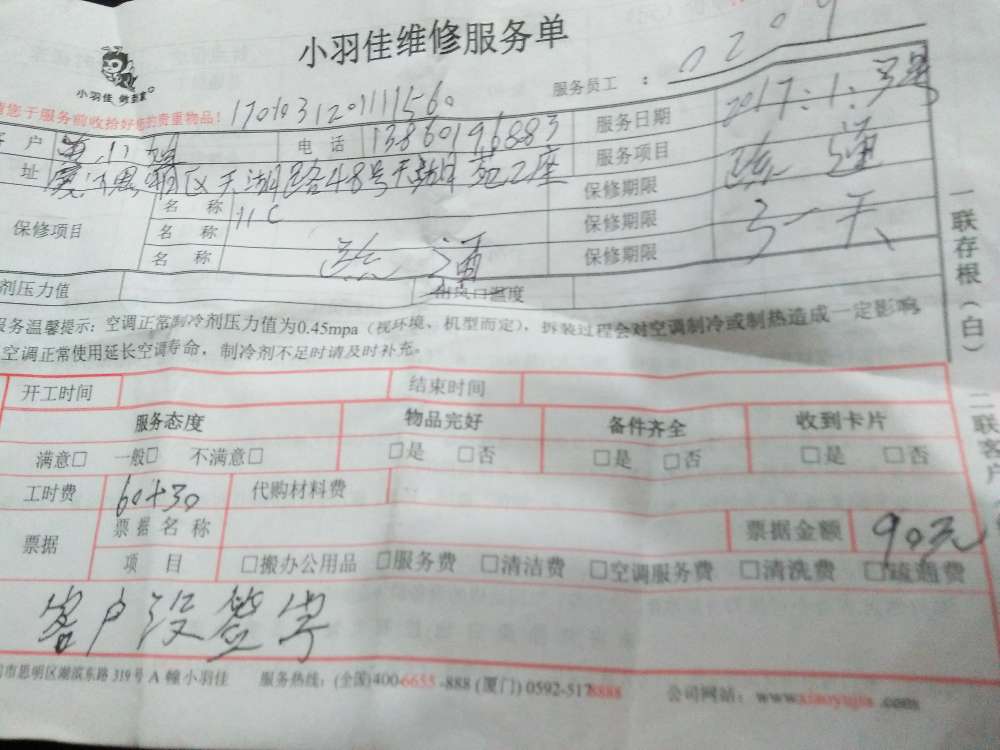 小羽佳维修服务单
小羽佳 做到家
服务员工 : 0209
请您于服务前收拾好您的贵重物品! 1701031201111560
客户 电话 13860196883 服务日期 2017.1.3号
址 厦门思明区天湖路48号天湖苑2座 服务项目 疏通
名称 11C 保修期限
保修项目 名称 保修期限 3一天
名称 疏通 保修期限
剂压力值 出风口温度
服务温馨提示: 空调正常制冷剂压力值为0.45mpa (视环境、机型而定), 拆装过程会对空调制冷或制热造成一定影响,
空调正常使用延长空调寿命, 制冷剂不足时请及时补充。
一联存根(白)
二联客户
开工时间 结束时间
服务态度 物品完好 备件齐全 收到卡片
满意□ 一般□ 不满意□ □是 □否 □是 □否 □是 □否
工时费 60+30 代购材料费
票据 票据名称 票据金额 90元
项目 □搬办公用品 □服务费 □清洁费 □空调服务费 □清洗费 □疏通费
客户没签字
市思明区湖滨东路319号A幢小羽佳 服务热线: (全国)400-6655-888 (厦门) 0592-5178888 公司网站: www.xiaoyujia.com